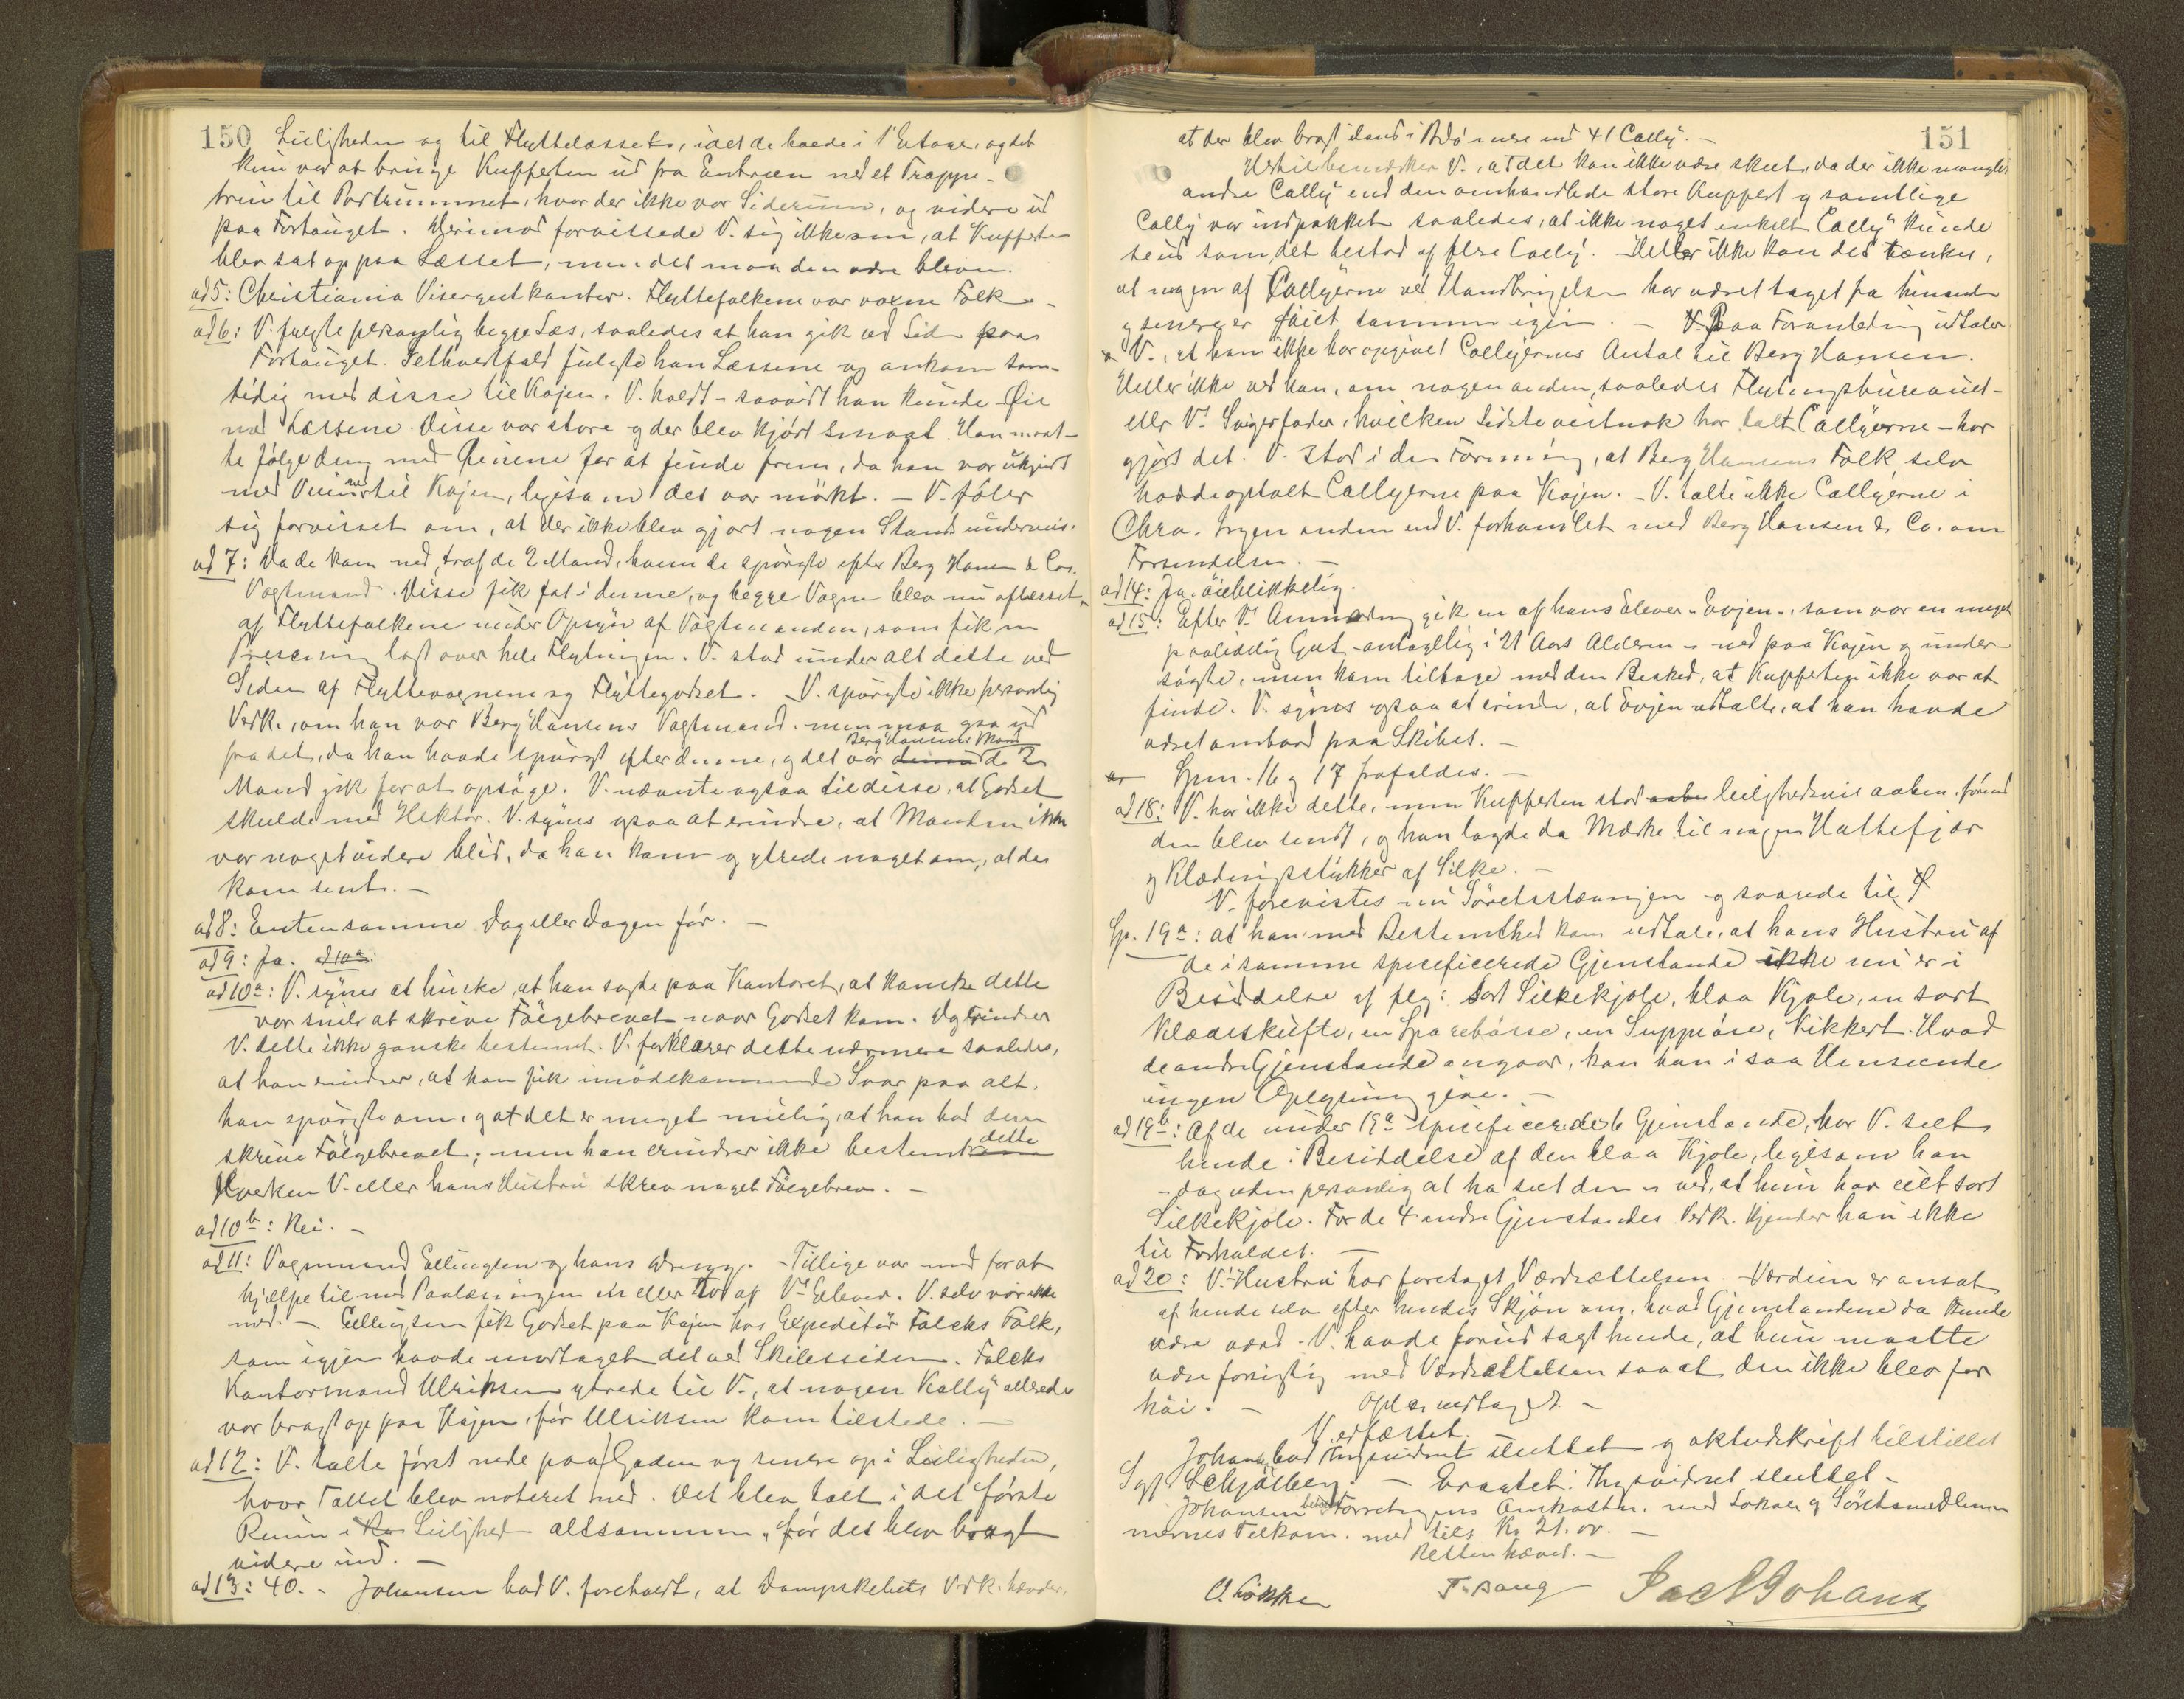 150 Leiligheden og til Flyttelasset, idet de boede i 1' Etage, og det
kun var at bringe Kufferten ud fra Entreen ned et Trappe-
trin til Portrummet, hvor der ikke var Siderum, og videre ud
paa Fortauget. Derimod forvissede V. sig ikke om, at Kufferten
blev sat op paa Læsset, men det maa den være bleven.
ad 5: Christiania Visergutkontor. Flyttefolkene var voxne Folk -
ad 6: V. fulgte personlig begge Læs, saaledes at han gik ved Siden paa
Fortauget. Ialhvertfald fulgte han Læssene og ankom sam-
tidig med disse til Kajen. V. holdt - saavidt han kunde - Øie
med Læssene. Disse var store og der blev kjørt smaat. Han maat-
te følge dem med Øinene for at finde frem, da han var ukjendt
med Veien ned til Kajen, ligesom det var mørkt. - V. føler
sig forvisset om, at der ikke blev gjort nogen Stands underveis.
ad 7: Da de kom ned, traf de 2 Mand, hvem de spurgte efter Berg Hansen & Cos.
Vagtmand. Disse fik fat i denne, og begge Vogne blev nu aflæsset
af Flyttefolkene under Opsyn af Vagtmanden, som fik en
Presenning lagt over hele Flytningen. V. stod under alt dette ved
Siden af Flyttevognene og Flyttegodset. - V. spurgte ikke personlig
Vedk. om han var Berg Hansens Vagtmand, men maa gaa ud
fra det, da han havde spurgt efter denne, og det var Berg Hansens Mand de 2
Mand gik for at opsøge. V. nævnte ogsaa til disse, at Godset
skulde med Hektor. V. synes ogsaa at erindre, at Manden ikke
var noget videre blid, da han kom og ytrede noget om, at det
kom sent. -
ad 8: Enten samme Dag eller Dagen før. -
ad 9: Ja. ad 10a:
ad 10a: V. synes at huske, at han sagde paa Kontoret, at kanske dette
var snile at skrive Følgebrevet naar Godset kom. Dog erindrer
V. dette ikke ganske bestemt. V. forklarer dette nærmere saaledes,
at han erindrer, at han fik imødekommende Svar paa alt,
han spurgte om, og at det er meget mulig, at han bad dem
skrive Følgebrevet; men han erindrer ikke bestemt dette
Hverken V. eller hans Hustru skrev noget Følgebrev. -
ad 10b: Nei. -
ad 11: Vognmand Ellingsen og hans Dreng. - Tillige var med for at
hjælpe til med Paalæsningen en eller to af Vs Elever. V. selv var ikke
med. - Ellingsen fik Godset paa Kajen hos Expeditør Falcks Folk,
som igjen havde modtaget det ved Skibssiden. Falcks
Kontormand Ulriksen ytrede til V., at nogen Kolly allerede
var bragt op paa Kajen, før Ulriksen kom tilstede. -
ad 12: V. talte først nede paa Gaden og senere op i Leiligheden,
hvor Tallet blev noteret ned. Det blev talt i det første
Rum i Leilighed altsammen, før det blev bragt
videre ind. -
ad 13: 40. - Johansen bad V. foreholdt, at Dampskibets Vedk. hævder,
151
at der blev bragt iland i Bodø mere end 41 Colly. -
Hertil bemærker V., at det kan ikke være skeet, da der ikke mangler
andre Colly end den omhandlede store Kuffert og samtlige
Colly var indpakket saaledes, at ikke noget enkelt Colly kunde
se ud som, det bestod af flere Colly. - Heller ikke kan det tænkes,
at nogen af Collyerne ved Ilandbringelsen har været taget fra hinanden
og senere er føiet sammen igjen. - Paa Foranledning udtaler
V., at han ikke har opgivet Collyernes Antal til Berg Hansen.
Heller ikke ved han, om nogen anden, saaledes Flytningsbureauet -
eller Vs Svigerfader, hvilken Sidste vistnok har talt Collyerne - har
gjort det. V. stod i den Formening, at Berg Hansens Folk selv
havde optalt Collyerne paa Kajen. - V. talte ikke Collyerne i
Chra. Ingen anden end V. forhandlet med Berg Hansen & Co. om
Forsendelsen. -
ad 14: Ja, øieblikkelig.
ad 15: Efter Vs Anmodning gik en af hans Elever - Evjen -, som var en meget
paalidelig Gut - antagelig i 21 Aars Alderen - ned paa Kajen og under-
søgte, men kom tilbage med den Besked, at Kufferten ikke var at
finde. V. synes ogsaa at erindre, at Evjen udtalte, at han havde
været ombord paa Skibet. -
Spm. 16 og 17 frafaldes. -
ad 18: V. har ikke dette, men Kufferten stod leilighedsvis aaben, førend
den blev sendt, og han lagde da Mærke til nogen Hattefjær
og Klædningsstykker af Silke. -
V. forevistes nu Søretsstævningen og svarede til
Sp. 19a: at han med Bestemthed kan udtale, at hans Hustru af
de i samme specificerede Gjenstande ikke nu er i
Besiddelse af flg: Sort Silkekjole, blaa Kjole, en sort
Klædeskufte, en Sparebøsse, en Suppeøse, Kikkert. Hvad
de andre Gjenstande angaar, kan han i saa Henseende
ingen Oplysning give. -
ad 19b: Af de under 19a specificerede 6 Gjenstande, har V. seet
hende i Besiddelse af den blaa Kjole, ligesom han
- dog uden personlig at ha seet den - ved, at hun har eiet sort
Silkekjole. For de 4 andre Gjenstandes Vedk. kjender han ikke
til Forholdet. -
ad 20: Vs Hustru har foretaget Værdsættelsen. Værdien er ansat
af hende selv efter hendes Skjøn om, hvad Gjenstandene da kunde
være værd. - V. havde forud sagt hende, at hun maatte
være forsigtig med Værdsættelsen saa at den ikke blev for
høi. - Opl. vedtaget. -
V. edfæstet.
Johansen bad Thingsvidnet sluttet og aktudskrift tilstillet
Sgf. Schjølberg. - Eragtet: Thgsvidnet sluttet -
Johansen betalte Forretningens Omkostn. med Lokale og Søretsmedlem-
mernes Tilkom. med tils. Kr 21.00. -
Retten hævet. -
O. Løkke T. Bang Jac N Johans